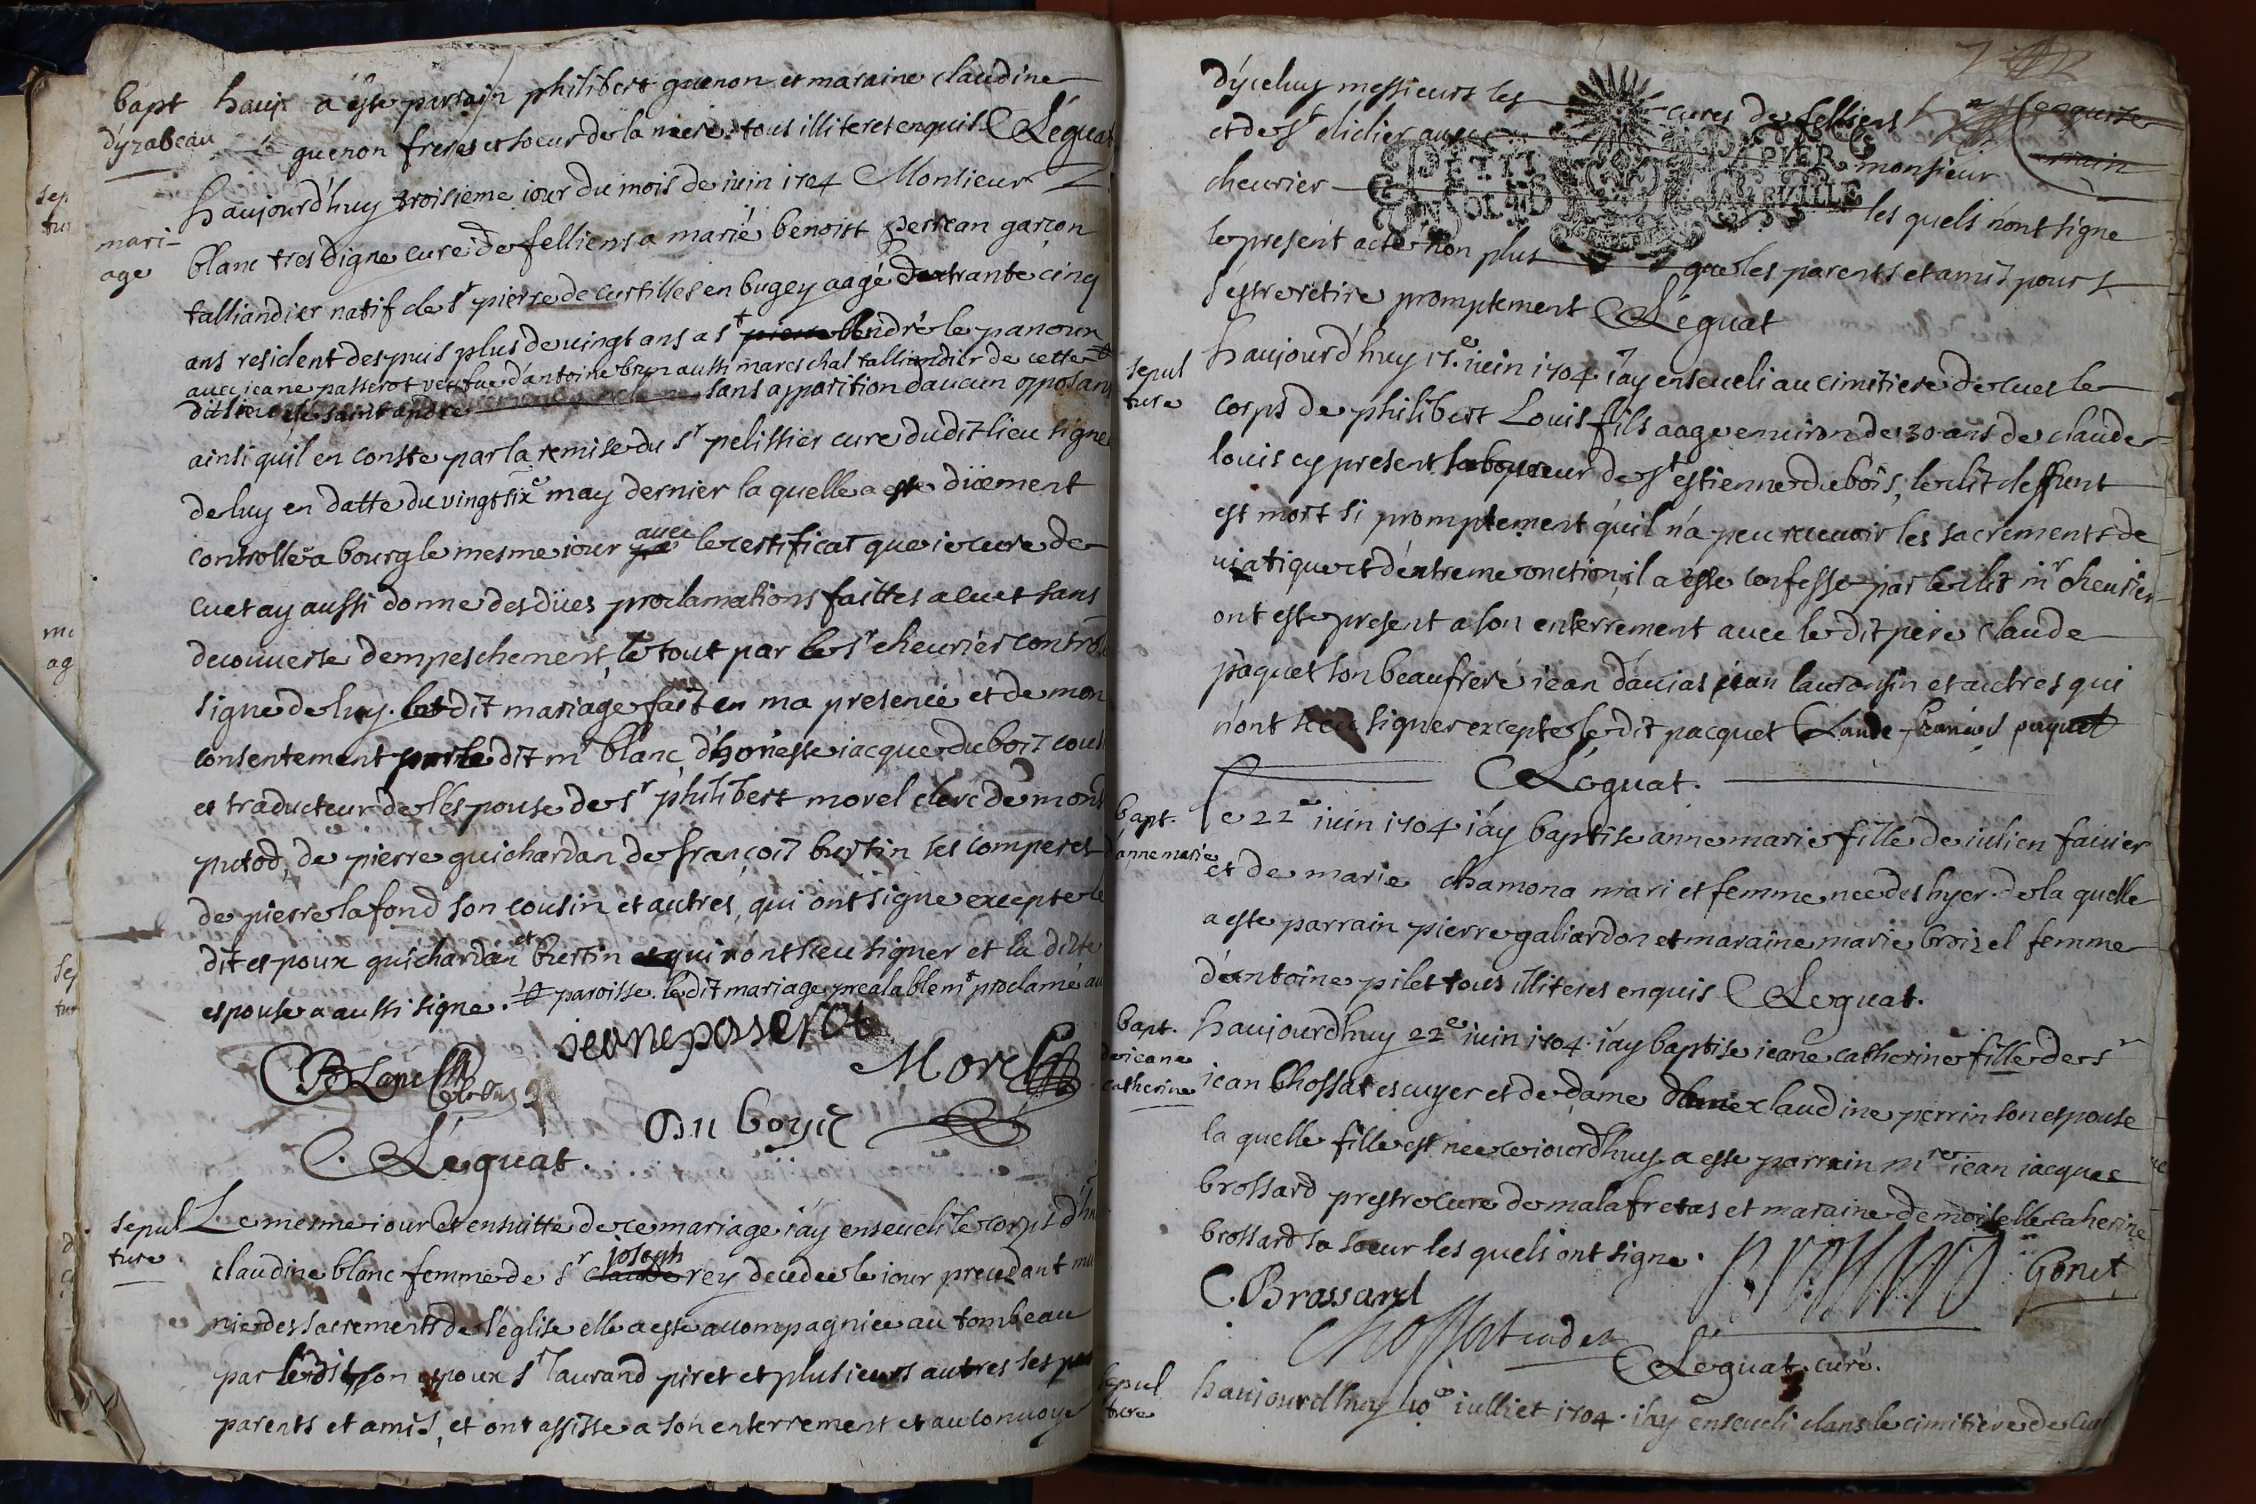 bapt
d'yzabeau
hauj. a esté parrain philibert guenon et maraine claudine
guenon freres et soeur de la mere. tous illiteres enquis Léguat
mari-
age
haujourd'huy troisieme iour du mois de iuin 1704 Monsieur
blanc tres digne cure de felliens a marié benoist perrean garçon
talliandier natif de sr pierre de curtilles en bugey aagé de trante cinq
ans resident despuis plus de vingt ans a st andré le panoux
avec jeane passerot veufue d'antoine brun aussi mareschal talliandier de cette
dit lieu de saint andre sans apparition d'aucun opposans
ainsi qu'il en conste par la remise du sr pelissier cure dudit lieu signe
de luy en datte du vingt sixe may dernier la quelle a este düement
controllée a bourg le mesme iour avec le certificat que ie cure de
cuet ay aussi donne des dües proclamations faittes a cuet sans
decouuerte dempeschement, le tout par le sr cheurier controlle
signe de luy. le dit mariage fait en ma presence et de mon
consentement par le dit mr blanc, d'honeste iacque du bois cousin
et traducteur de l'espouse de sr philibert morel clerc de mont
putod, de pierre guichardan de françois burtin ses comperes
de pierre lafond son cousin et autres, qui ont signe excepte le
dit espoux guichardan et burtin qui n'ont sceu signer et la dite
espouse a aussi signe. paroisse. le dit mariage prealablemt proclamé au
jeane paserot
Blanc
Morel
Du boys
Léguat.
sepul
ture
Le mesme iour et ensuitte de ce mariage i'ay enseueli le corps d'h
claudine blanc femme de sr joseph rey decedee le iour precedant mu
nie des sacrements de l'église elle a este acompagniee au tombeau
par le dit son espoux sr laurand piret et plusieurs autres ses
parents et amis, et ont assiste a son enterrement et au conuoye
d'yceluy messieurs les cures de felliens
et de st didier auec monsieur
cheurier les quels n'ont signe
PETIT PAPIER
le present acte non plus que les parents et amis pour
s'estre retire promptement Léguat
sepul
ture
haujourd'huy 17.e iuin 1704 i'ay enseueli au cimitiere de cuet le
corps de philibert Louis fils aage enuiron de 30 ans de claude
louis cy present laboureur de st estienne du bois, le dit deffunt
est mort si promptement qu'il n'a peu receuoir les sacrements de
viatique et d'extreme onction, il a esté confesse par le dit mr cheurier
ont este present a son enterrement auec le dit pere claude
paquet son beaufrere iean dauias iean lauronsin et autres qui
n'ont sceu signer excepte le dit pacquet Claude francois paquet
Léguat.
bapt.
d'anne marie
le 22e iuin 1704 i'ay baptise anne marie fille de iulien fauier
et de marie chamona mari et femme nee des hyer. de la quelle
a este parrain pierre galiardon et maraine marie broizel femme
d'antoine pilet tous illiteres enquis Leguat.
bapt.
de ieane
catherine
haujourdhuy 22e iuin 1704 i'ay baptise ieane catherine fille de sr
iean Chossat escuyer et de dame claudine perrin son espouse
la quelle fille est nee ce iourdhuy a este parrain mre iean iacques
brossard prestre cure de malafretas et maraine demoiselle catherine
brossard sa soeur les quels ont signe.
C. Brossard
Gonet
Chossat
Léguat. curé.
sepul
ture
haujourdhuy 10e iulliet 1704. i'ay enseueli dans le cimitiere de cuet